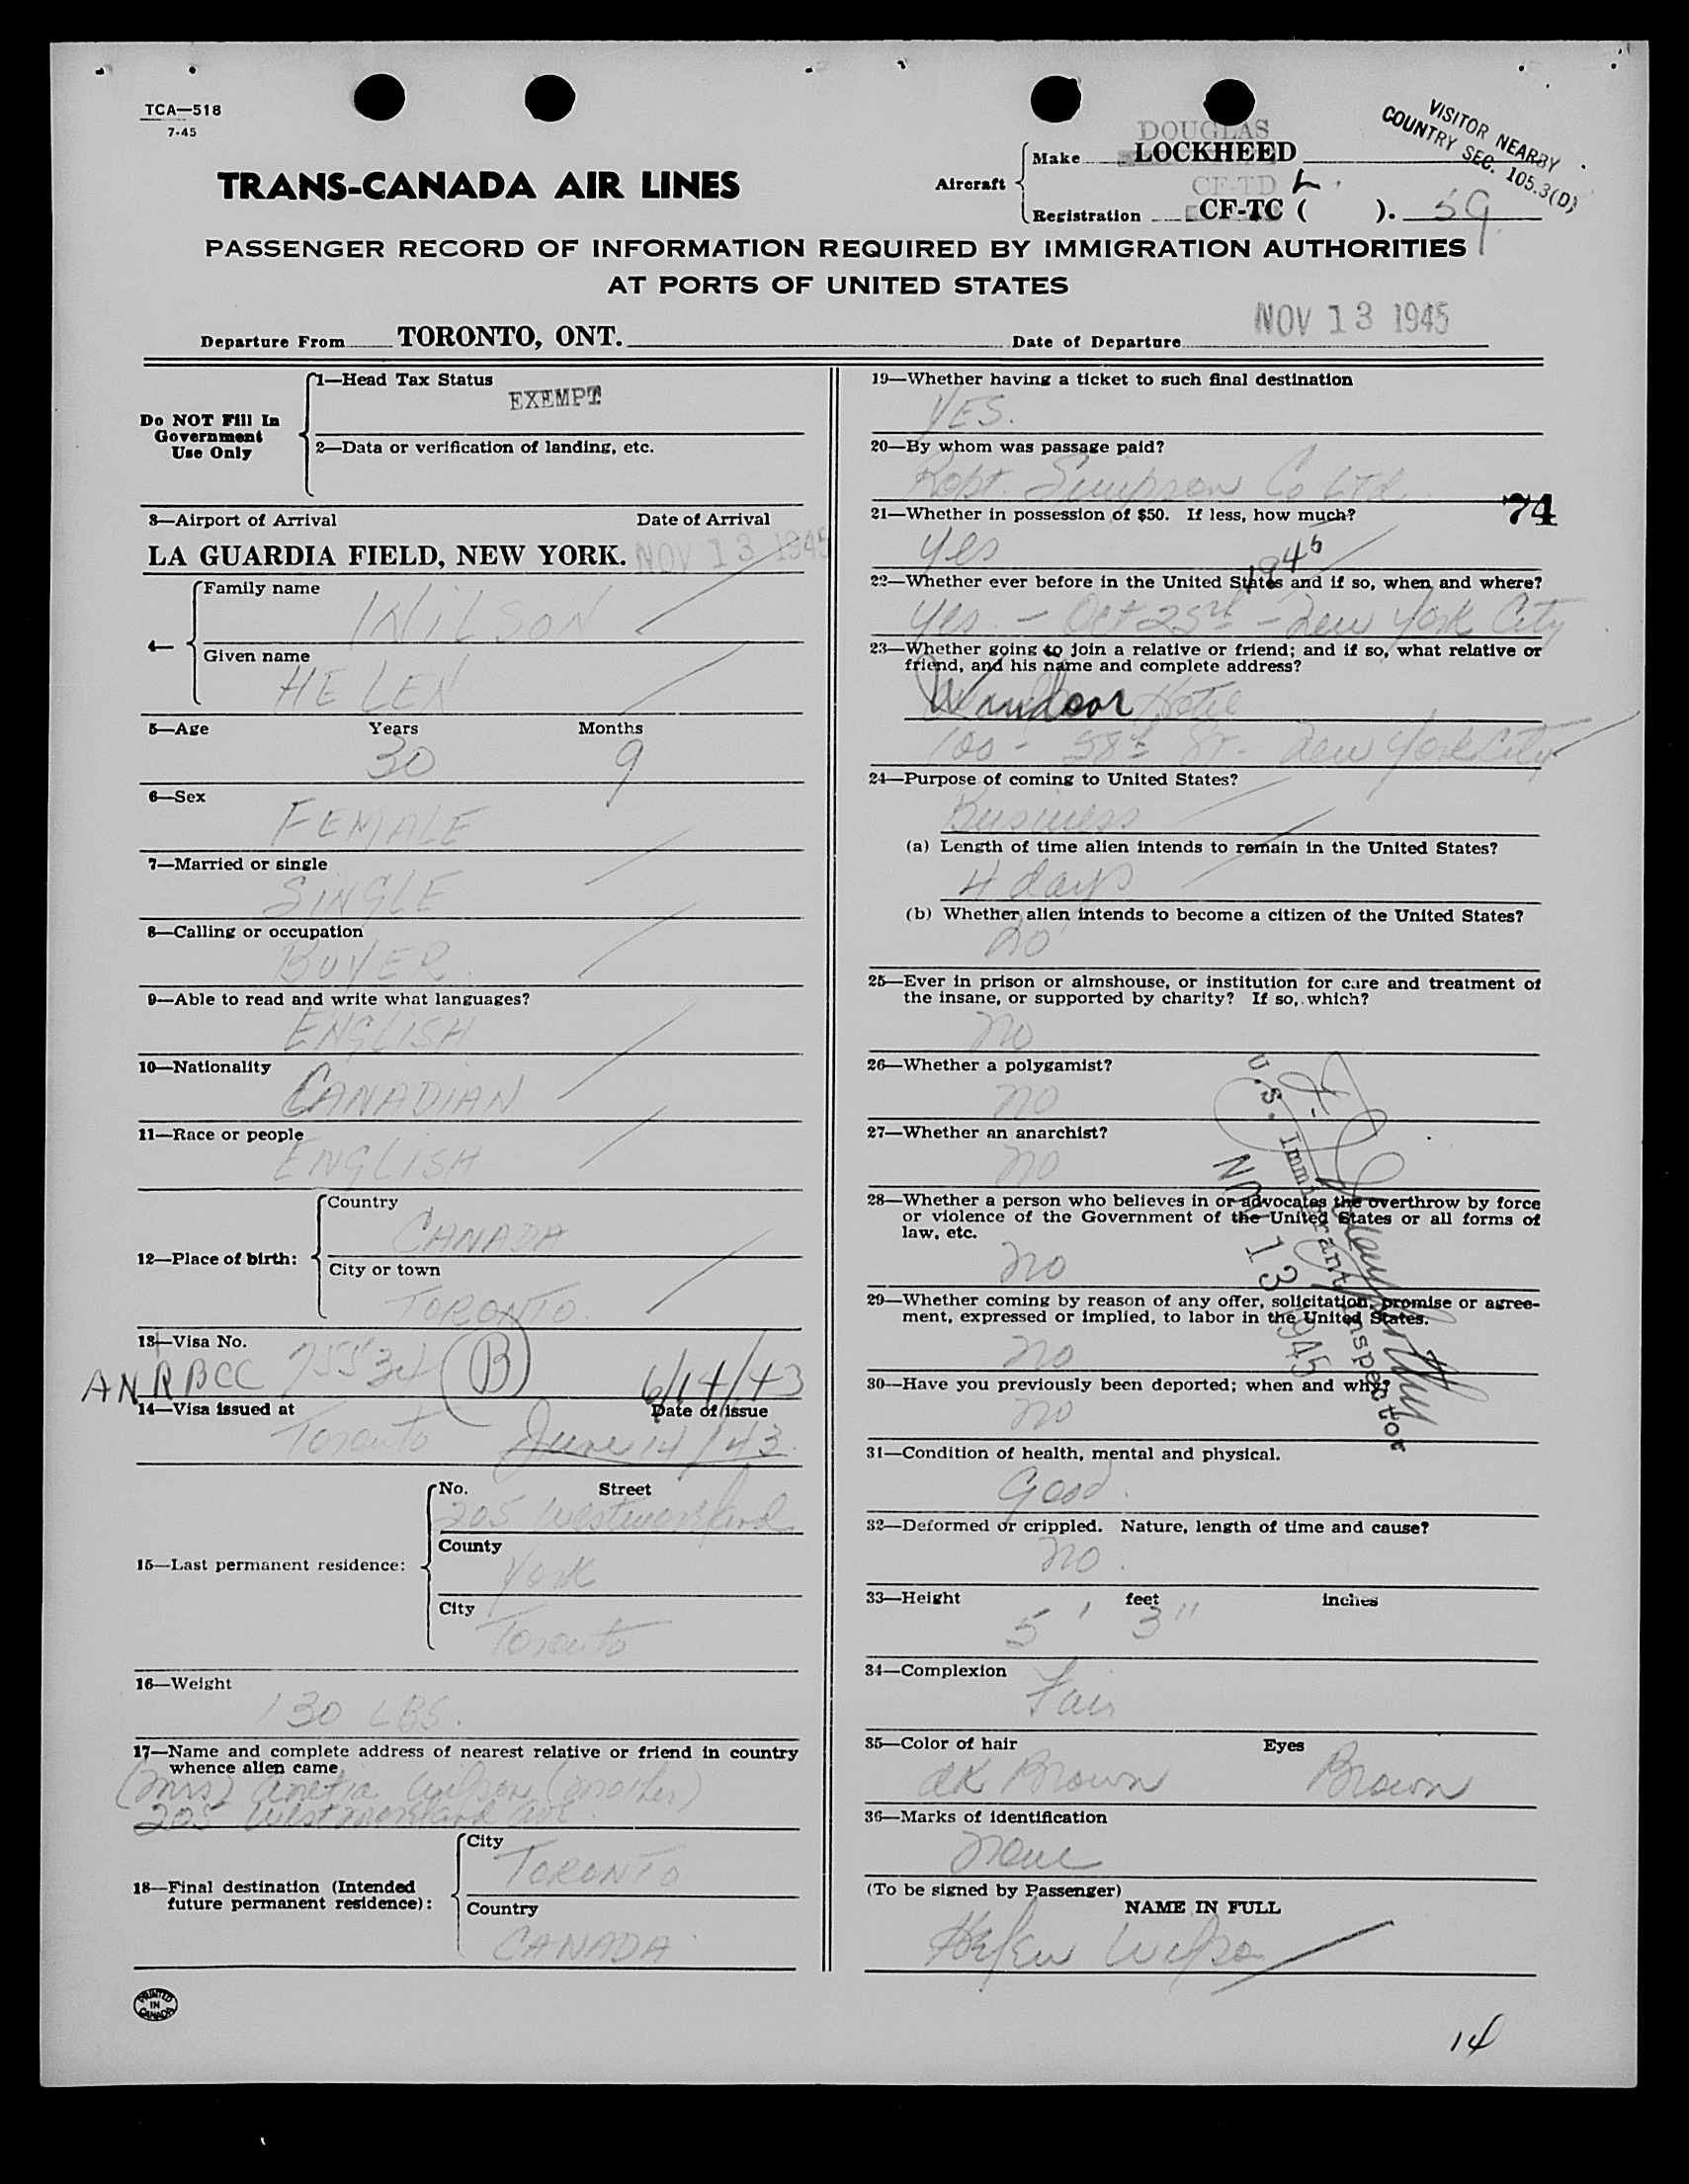 TCA—518
7-45
VISITOR NEARBY
COUNTRY SEC. 105.3(D)
TRANS-CANADA AIR LINES
Aircraft
DOUGLAS
Make LOCKHEED
CF-TD L
Registration CF-TC ( ). 59
PASSENGER RECORD OF INFORMATION REQUIRED BY IMMIGRATION AUTHORITIES
AT PORTS OF UNITED STATES
Departure From TORONTO, ONT. Date of Departure NOV 13 1945
Do NOT Fill In
Government
Use Only
1—Head Tax Status
EXEMPT
2—Data or verification of landing, etc.
3—Airport of Arrival Date of Arrival
LA GUARDIA FIELD, NEW YORK. NOV 13 1945
4—
Family name
WILSON
Given name
HELEN
5—Age Years Months
30 9
6—Sex
FEMALE
7—Married or single
SINGLE
8—Calling or occupation
BUYER
9—Able to read and write what languages?
ENGLISH
10—Nationality
CANADIAN
11—Race or people
ENGLISH
12—Place of birth:
Country
CANADA
City or town
TORONTO
13—Visa No.
RBCC B 6/14/43
14—Visa issued at Date of issue
Toronto June 14/43
15—Last permanent residence:
No. Street
205 Westmoreland
County
York
City
Toronto
16—Weight
130 LBS.
17—Name and complete address of nearest relative or friend in country
whence alien came
(Mrs) Wilson (mother)
205 Westmoreland ave.
18—Final destination (Intended
future permanent residence):
City
TORONTO
Country
CANADA
PRINTED
IN
CANADA
19—Whether having a ticket to such final destination
YES.
20—By whom was passage paid?
Robt. Simpson Co Ltd.
74
21—Whether in possession of $50. If less, how much?
yes
1945
22—Whether ever before in the United States and if so, when and where?
yes. - Oct 25th - New York City
23—Whether going to join a relative or friend; and if so, what relative or
friend, and his name and complete address?
Windsor Hotel
100 - 58th St. - New York City
24—Purpose of coming to United States?
Business
(a) Length of time alien intends to remain in the United States?
4 days
(b) Whether alien intends to become a citizen of the United States?
no
25—Ever in prison or almshouse, or institution for care and treatment of
the insane, or supported by charity? If so, which?
no
26—Whether a polygamist?
no
27—Whether an anarchist?
no
28—Whether a person who believes in or advocates the overthrow by force
or violence of the Government of the United States or all forms of
law, etc.
no
29—Whether coming by reason of any offer, solicitation, promise or agree-
ment, expressed or implied, to labor in the United States.
no
30—Have you previously been deported; when and why?
no
U.S. Immigrant Inspector
NOV 13 1945
31—Condition of health, mental and physical.
Good.
32—Deformed or crippled. Nature, length of time and cause?
no.
33—Height feet inches
5' 3"
34—Complexion
Fair
35—Color of hair Eyes
dk Brown Brown
36—Marks of identification
None
(To be signed by Passenger)
NAME IN FULL
Helen Wilson
14